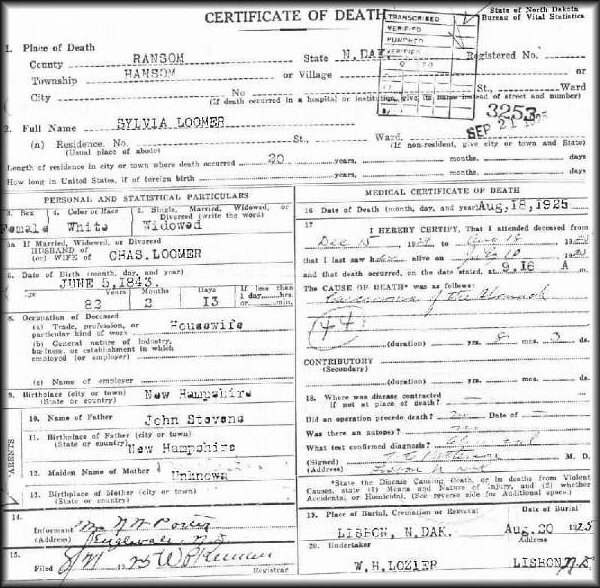 CERTIFICATE OF DEATH
State of North Dakota
Bureau of Vital Statistics
TRANSCRIBED
VERIFIED
PUNCHED
VERIFIED
1. Place of Death
County RANSOM State N.DAK. Registered No.
Township HANSOM or Village or
City No. St., Ward
(If death occurred in a hospital or institution, give its name instead of street and number)
3253
SEP 21 1925
2. Full Name SYLVIA LOOMER
(a) Residence. No. St., Ward.
(Usual place of abode) (If non-resident, give city or town and State)
Length of residence in city or town where death occurred 20 years, months, days
How long in United States, if of foreign birth years, months, days
PERSONAL AND STATISTICAL PARTICULARS
3. Sex 4. Color or Race 5. Single, Married, Widowed, or Divorced (write the word)
Female White Widowed
5a If Married, Widowed, or Divorced
HUSBAND of
(or) WIFE of CHAS. LOOMER
6. Date of Birth (month, day, and year)
JUNE 5, 1843.
Years Months Days If less than
1 day, hrs.
or min.
82 2 13
8. Occupation of Deceased
(a) Trade, profession, or
particular kind of work Housewife
(b) General nature of industry,
business, or establishment in which
employed (or employer)
(c) Name of employer
9. Birthplace (city or town) New Hampshire
(State or country)
PARENTS
10. Name of Father John Stevens
11. Birthplace of Father (city or town)
(State or country) New Hampshire
12. Maiden Name of Mother Unknown
13. Birthplace of Mother (city or town)
(State or country)
14.
Informant
(Address)
15.
Filed
Registrar
MEDICAL CERTIFICATE OF DEATH
16 Date of Death (month, day, and year) Aug, 18, 1925
17
I HEREBY CERTIFY, That I attended deceased from
Dec 15 Aug 18
that I last saw her alive on
and that death occurred, on the date stated, at 9,16 A m.
The CAUSE OF DEATH* was as follows:
Carcinoma of the Stomach
(44)
(duration) yrs. 8 mos. 3 ds.
CONTRIBUTORY
(Secondary)
(duration) yrs. mos. ds.
18. Where was disease contracted
if not at place of death?
Did an operation precede death? no Date of
Was there an autopsy? no
What test confirmed diagnosis?
(Signed) M. D.
(Address)
*State the Disease Causing Death, or in deaths from Violent
Causes, state (1) Means and Nature of Injury, and (2) whether
Accidental or Homicidal. (See reverse side for Additional space.)
19. Place of Burial, Cremation or Removal Date of Burial
LISBON, N.DAK. Aug. 20 1925
20. Undertaker
W.H. LOZIER LISBON N.D.